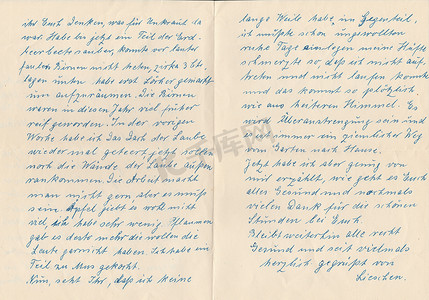 ihr Euch denken, was für Unkraut da
war. Habe bis jetzt ein Teil der Erd-
beerbeete sauber, konnte vor lauter
faulen Birnen nicht treten, zirka 3 St.
lagen unten habe erst Löcher gemacht
um aufzuräumen. Die Birnen
waren in diesem Jahr viel früher
reif geworden. In der vorigen
Woche habe ich das Dach der Laube
wieder mal geteert, jetzt
noch die Wände der Laube außen
rankommen. Die Arbeit macht
man nicht gern, aber es muß
sein. Äpfel giebt es wohl nicht
viel, ich habe sehr wenig. Pflaumen
gab es desto mehr die wollen die
Leute garnicht haben. Ich habe ein
Teil zu Mus gekocht.
Nun, seht Ihr, daß ich keine
lange Weile habe, im Gegenteil,
ich mußte schon ungewollten
ruhe Tage einlegen meine Hüfte
schmerzte so, daß ich nicht auf-
treten und nicht laufen konnte
und das kommt so plötzlich,
wie aus heiteren Himmel. Es
wird Überanstrengung sein und
es ist immer ein ziemlicher Weg
vom Garten nach Hause.
Jetzt habe ich aber genug von
mir erzählt, wie geht es Euch
alles Gesund und nochmals
vielen Dank für die schönen
Stunden bei Euch.
Bleibt weiterhin alle recht
Gesund und seit vielmals
herzlich gegrüßt von
Lieschen.